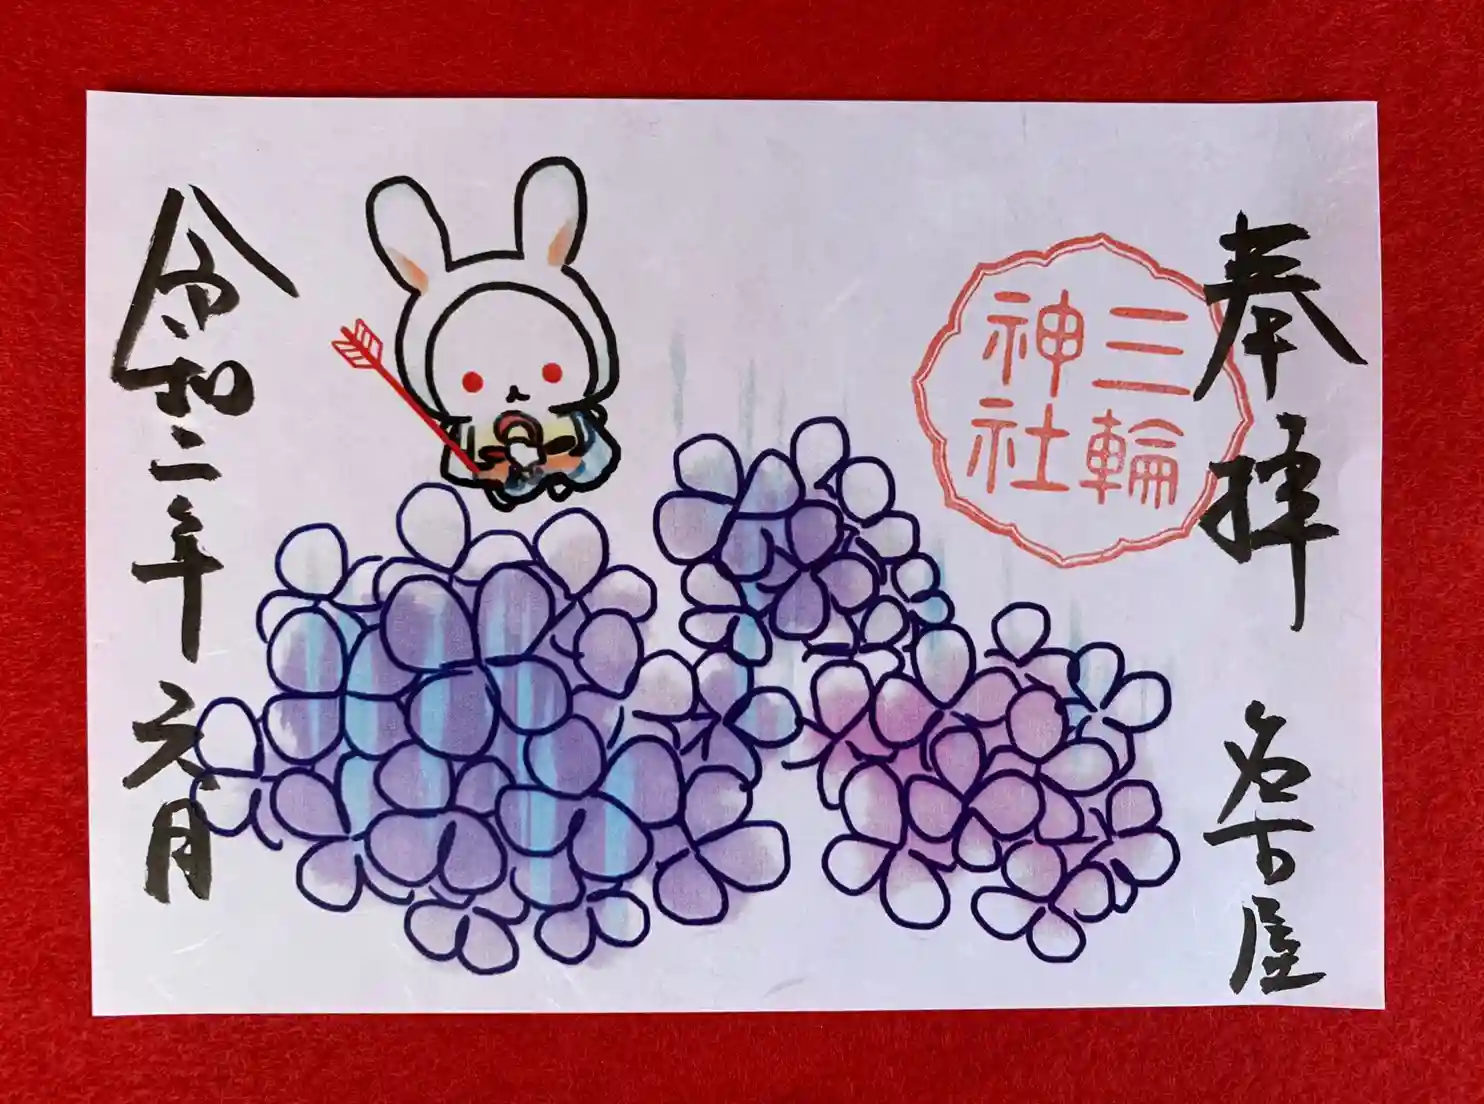 奉拝 名古屋
三輪
神社
令和二年 六月